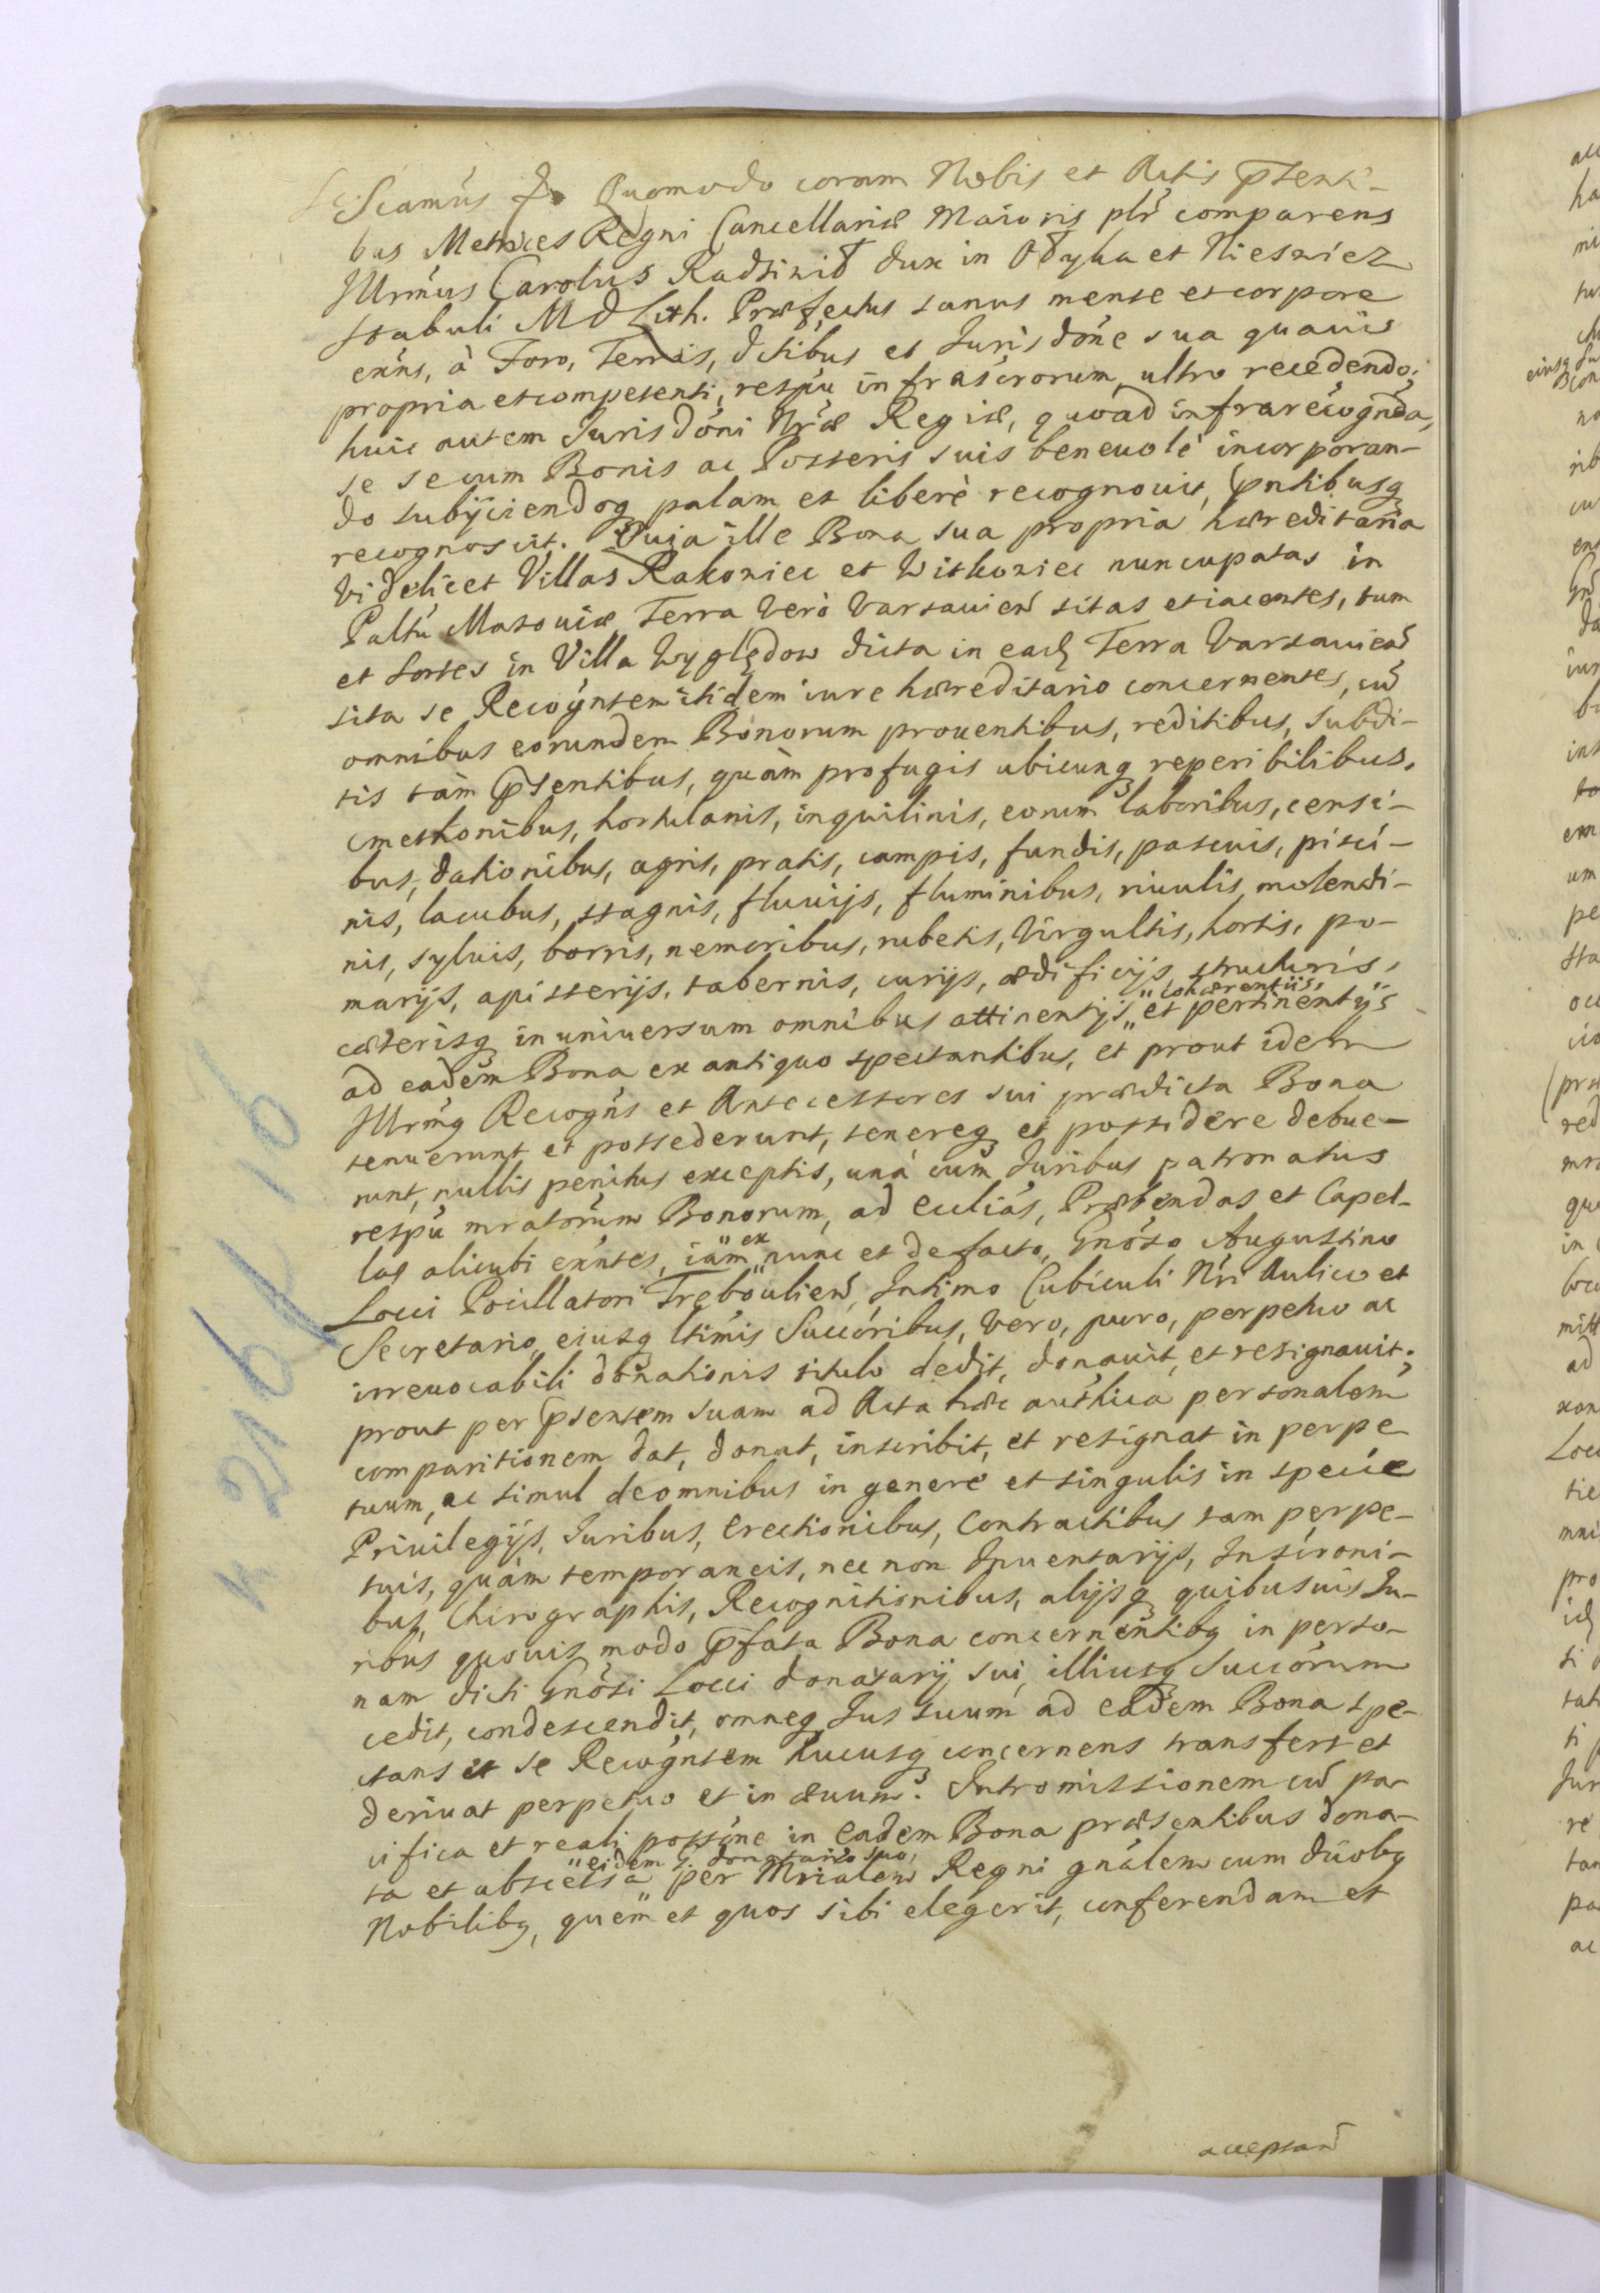 Sciamus Quomodo coram Nobis et Actis p̃senti-
bus Metrices Regni Cancellariæ Maioris plr̃ comparens
Illr̃mus Carolus Radziwił Dux in Ołyka et Nieswiez
stabuli M D Lith. Præfectus sanus mente et corpore
exñs, à Foro, Terris, dctibus et Jurisdõne sua quauis
propria et competenti, respũ infrascrorum ultro recedendo;
huic autem Jurisdõni Nr̃æ Regiæ, quoad infrarecognda,
se se cum Bonis ac Posteris suis beneuolè incorporan-
do subÿciendoq palam et liberè recognouit, p̃ntibusq
recognoscit. Quia ille Bona sua propria hæreditaria
videlicet Villas Rakowiec et Witkowiec nuncupatas in
Paltũ Masouiæ Terra verò Varsauień sitas et iacentes, tum
et sortes in Villa Wyględow dicta in eađ Terra Varsauień
sita se Recogntem itidem iure hæreditario concernentes, cũ
omnibus eorundem Bonorum prouentibus, reditibus, subdi-
tis tàm p̃sentibus, quàm profugis ubicunq reperibilibus,
cmethonibus, hortulanis, inquilinis, eorum laboribus, censi-
bus, dationibus, agris, pratis, campis, fundis, pascuis, pisci-
nis, lacubus, stagnis, fluuijs, fluminibus, riuulis, molendi-
nis, syluis, borris, nemoribus, rubetis, virgultis, hortis, po-
marijs, apisterijs, tabernis, curijs, ædificijs, structuris,
cæterisq in uniuersum omnibus attinentijs „cohærentiis, et pertinentÿs
ad eadem Bona ex antiquo spectantibus, et prout idem
Illr̃mq Recogñs et Antecessores sui prædicta Bona
tenuerunt et possederunt, tenereq et possidere debue-
runt, nullis penitus exceptis, unà cum Juribus patronatus
respũ mratorum Bonorum, ad Ecclias, Præbendas et Capel-
las alicubi exñtes, iam „ex nunc et de facto, Gnõso Augustino
Locci Pocillatori Trębouliem, Intimo Cubiculi Nr̃i Aulico et
Secretario, eiusq ltimis Succoribus, vero, puro, perpetuo ac
irreuocabili donationis titulo dedit, donauit, et resignauit;
prout per p̃sentem suam ad Acta hæc authica personalem
comparitionem dat, donat, inscribit, et resignat in perpe
tuum, ac simul de omnibus in genere et singulis in specie
Priuilegÿs, Juribus, Erectionibus, Contractibus tam perpe-
tuis, quàm temporaneis, nec non Inuentarÿs, Inscroni-
bus, Chirographis, Recognitionibus, alÿsq quibusuis Ju-
ribus quouis modo p̃fata Bona concernentibq in perso-
nam dicti Gnõsi Locci donatarij sui, illiusq Succorum
cedit, condescendit, omneq Jus suum ad eadem Bona spe-
ctans et se Recogntem hucusq concernens transfert et
deriuat perpetuo et in æuum. Intromissionem cũ pa-
cifica et reali possone in eadem Bona præsentibus dona-
„eidem G. donatario suo,
ta et abscessa per Mrialem Regni gnalem cum duobq
Nobilibq, quem et quos sibi elegerit, conferendam et
acceptań